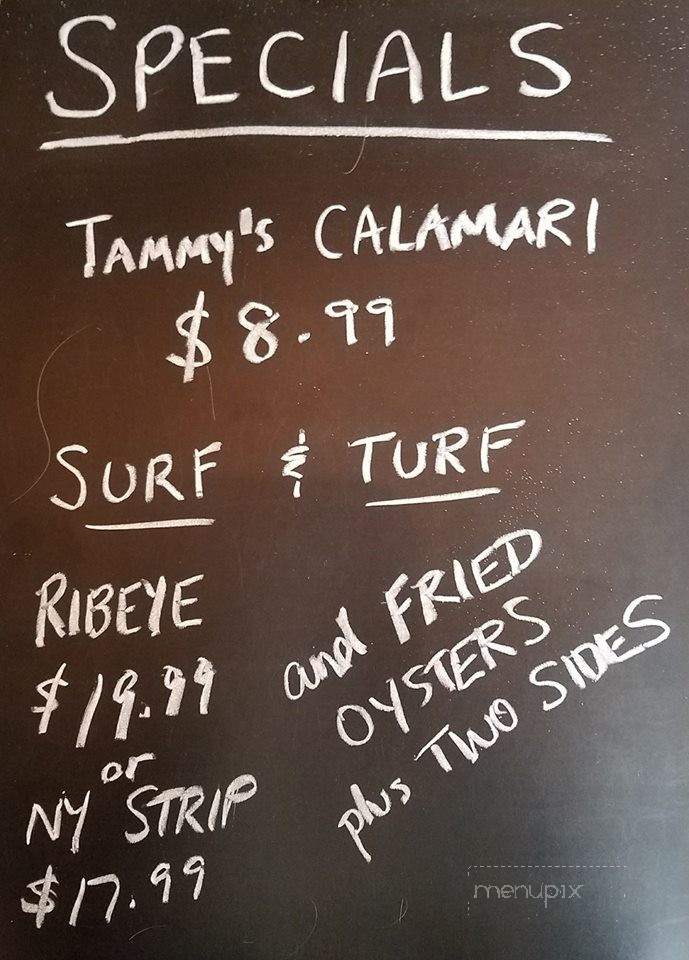 SPECIALS
TAMMY'S CALAMARI
$8.99
SURF & TURF
RIBEYE
$19.99
or
NY STRIP
$17.99
and FRIED
OYSTERS
plus TWO SIDES
menupix